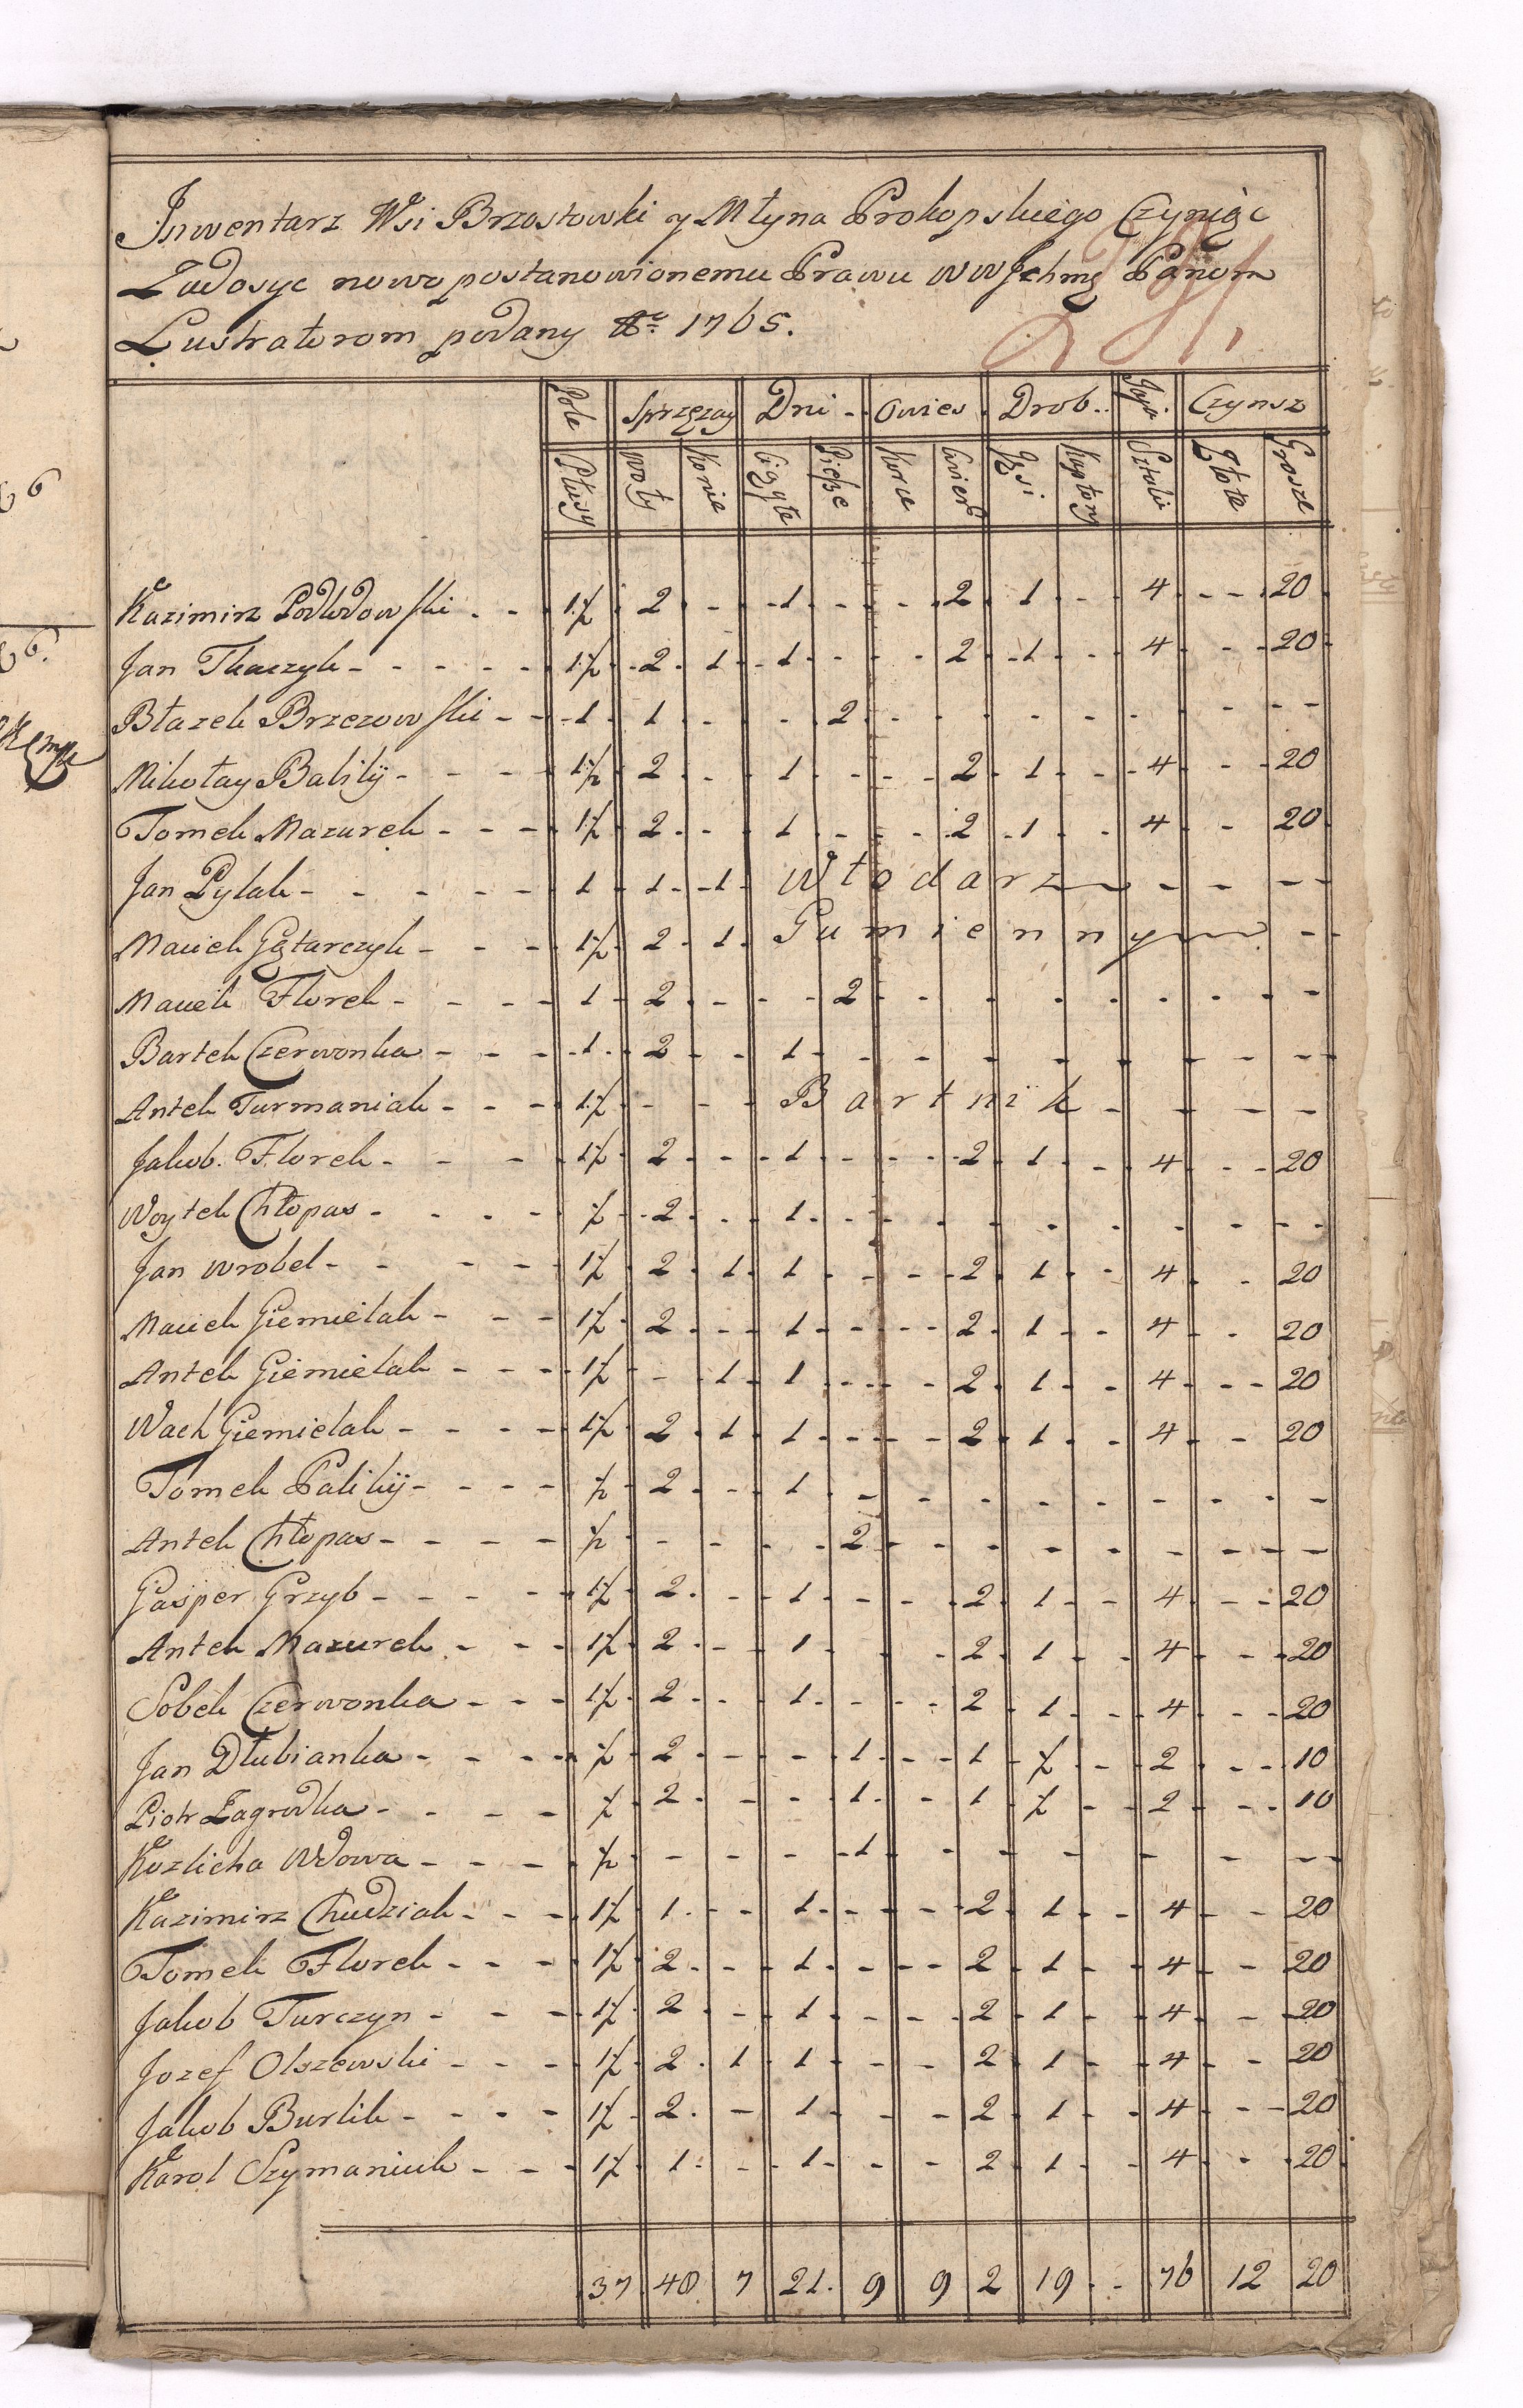 Inwentarz Wsi Brzostowki y Młyna Prokopskiego Czyniąc
Zadosyc nowo postanowionemu Prawu WW Jchmę Panom
Lustratorom podany Aº 1765.
Pole Sprzęzay Dni Owies Drob Jaja Czynsz
Pługi Woły Konie Ciągłe Piesze Korce Cwierc Gęsi Kapłony Sztuki Złote Grosze
Kazimirz Podlodowski - - 1½ 2 - 1 - - 2 1 - 4 - 20
Jan Tkaczyk - - 1½ 2 1 1 - - 2 1 - 4 - 20
Błazek Brzezowski - - 1 1 - - 2 - - - - - - -
Mikołay Balikÿ - - 1½ 2 - 1 - - 2 1 - 4 - 20
Tomek Mazurek - - 1½ 2 - 1 - - 2 1 - 4 - 20
Jan Pytak - - 1 1 1 Włodarz - - - -
Maciek Gątarczyk - - 1½ 2 1 Gumiennym - -
Maciek Florek - - 1 2 - - 2 - - - - - - -
Bartek Czerwonka - - 1 2 - 1 - - - - - - - -
Antek Turmaniak - - 1½ - - Bartnik - - - -
Jakob Florek - - 1½ 2 - 1 - - 2 1 - 4 - 20
Woytek Chłopas - - ½ 2 - 1 - - - - - - - -
Jan Wrobel - - 1½ 2 1 1 - - 2 1 - 4 - 20
Maciek Giemielak - - 1½ 2 - 1 - - 2 1 - 4 - 20
Antek Giemielak - - 1½ - 1 1 - - 2 1 - 4 - 20
Wach Giemielak - - 1½ 2 1 1 - - 2 1 - 4 - 20
Tomek Palikÿ - - ½ 2 - 1 - - - - - - - -
Antek Chłopas - - ½ - - - 2 - - - - - - -
Gasper Grzyb - - 1½ 2 - 1 - - 2 1 - 4 - 20
Antek Mazurek - - 1½ 2 - 1 - - 2 1 - 4 - 20
Sobek Czerwonka - - 1½ 2 - 1 - - 2 1 - 4 - 20
Jan Dłubianka - - ½ 2 - - 1 - 1 ½ - 2 - 10
Piotr Zagrodka - - ½ 2 - - 1 - 1 ½ - 2 - 10
Kozlicha Wdowa - - ½ - - - 1 - - - - - - -
Kazimirz Chudziak - - 1½ 1 - 1 - - 2 1 - 4 - 20
Tomek Florek - - 1½ 2 - 1 - - 2 1 - 4 - 20
Jakob Turczyn - - 1½ 2 - 1 - - 2 1 - 4 - 20
Jozef Olszewski - - 1½ 2 1 1 - - 2 1 - 4 - 20
Jakob Burlik - - 1½ 2 - 1 - - 2 1 - 4 - 20
Karol Szymaniuk - - 1½ 1 - 1 - - 2 1 - 4 - 20
37 48 7 21 9 9 2 19 - 76 12 20